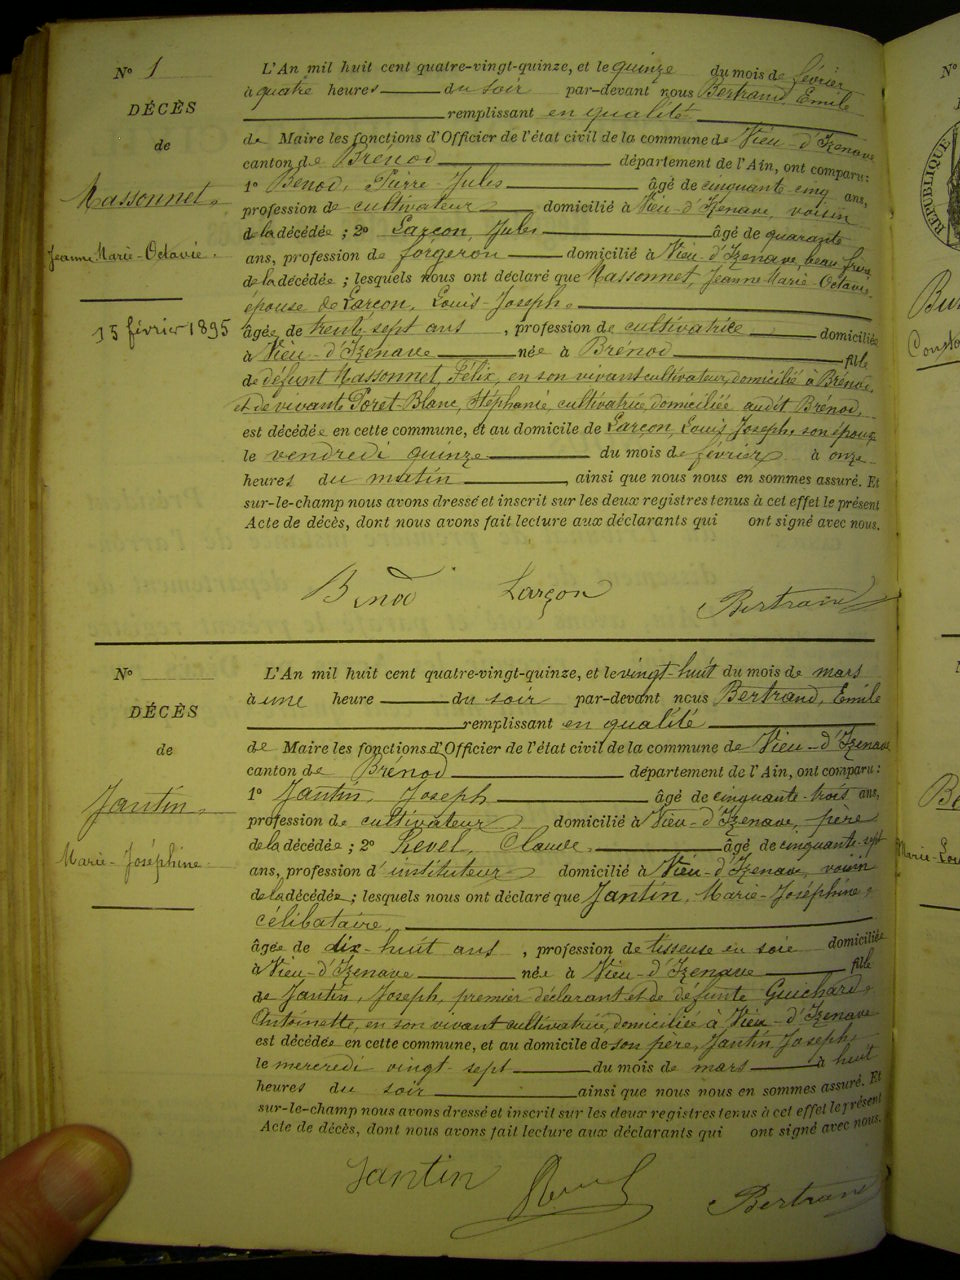 N° 1
DÉCÈS
de
Massonnet
Jeanne Marie-Octavie.
15 février 1895
L'An mil huit cent quatre-vingt-quinze, et le quinze du mois de février
à quatre heures du soir par-devant nous Bertrand, Emile
remplissant en qualité
de Maire les fonctions d'Officier de l'état civil de la commune de Vieu-d'Izenave
canton de Brénod département de l'Ain, ont comparu:
1° Benod, Pierre-Jules âgé de cinquante cinq ans,
profession de cultivateur domicilié à Vieu-d'Izenave, voisin
de la décédée; 2° Larçon, Jules âgé de quarante
ans, profession de forgeron domicilié à Vieu-d'Izenave, beau frère
de la décédée; lesquels nous ont déclaré que Massonnet, Jeanne Marie-Octavie,
épouse de Larçon, Louis-Joseph,
âgée de trente-sept ans, profession de cultivatrice domiciliée
à Vieu-d'Izenave née à Brénod fille
de défunt Massonnet, Félix, en son vivant cultivateur, domicilié à Brénod,
et de vivante Poret-Blanc, Stéphanie, cultivatrice, domiciliée audit Brénod,
est décédée en cette commune, et au domicile de Larçon, Louis Joseph, son époux
le vendredi quinze du mois de février à onze
heures du matin, ainsi que nous nous en sommes assuré. Et
sur-le-champ nous avons dressé et inscrit sur les deux registres tenus à cet effet le présent
Acte de décès, dont nous avons fait lecture aux déclarants qui ont signé avec nous.
Benod Larçon Bertrand
N°
DÉCÈS
de
Jantin
Marie-Joséphine
L'An mil huit cent quatre-vingt-quinze, et le vingt-huit du mois de mars
à une heure du soir par-devant nous Bertrand, Emile
remplissant en qualité
de Maire les fonctions d'Officier de l'état civil de la commune de Vieu-d'Izenave
canton de Brénod département de l'Ain, ont comparu:
1° Jantin, Joseph âgé de cinquante-trois ans,
profession de cultivateur domicilié à Vieu-d'Izenave, père
de la décédée; 2° Revel, Claude, âgé de cinquante-sept
ans, profession d'instituteur domicilié à Vieu-d'Izenave, voisin
de la décédée; lesquels nous ont déclaré que Jantin, Marie-Joséphine,
célibataire,
âgée de dix-huit ans, profession de tisseuse en soie domiciliée
à Vieu-d'Izenave née à Vieu-d'Izenave fille
de Jantin, Joseph, premier déclarant et de défunte Guichard,
Antoinette, en son vivant cultivatrice, domiciliée à Vieu-d'Izenave
est décédée en cette commune, et au domicile de son père, Jantin Joseph,
le mercredi vingt-sept du mois de mars à huit
heures du soir ainsi que nous nous en sommes assuré. Et
sur-le-champ nous avons dressé et inscrit sur les deux registres tenus à cet effet le présent
Acte de décès, dont nous avons fait lecture aux déclarants qui ont signé avec nous.
Jantin Revel Bertrand
N°
RÉPUBLIQUE
N
Marie-Lou